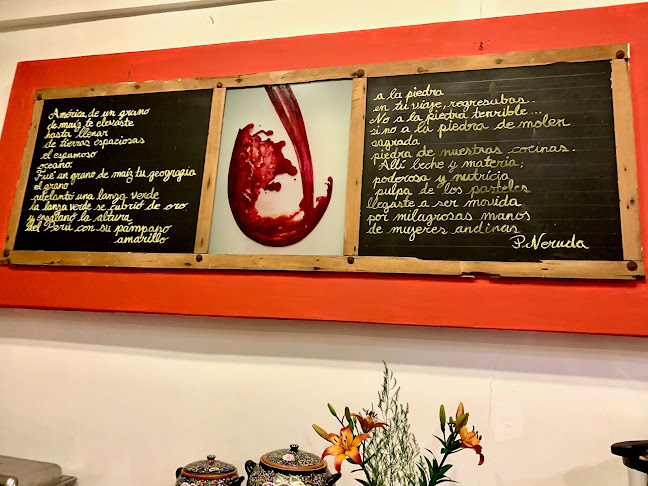 América de un grano
de maíz te elevaste
hasta llenar
de tierras espaciosas
el espumoso
oceano
Fué un grano de maíz tu geografia
el grano
adelantó una lanza verde
la lanza verde se cubrió de oro
y engalanó la altura
del Perú con su pámpano
amarillo
a la piedra
en tu viaje, regresabas.
No a la piedra terrible...
sino a la piedra de moler
sagrada
piedra de nuestras cocinas.
Allí leche y materia,
poderosa y nutricia
pulpa de los pasteles
llegaste a ser movida
por milagrosas manos
de mujeres andinas
P. Neruda